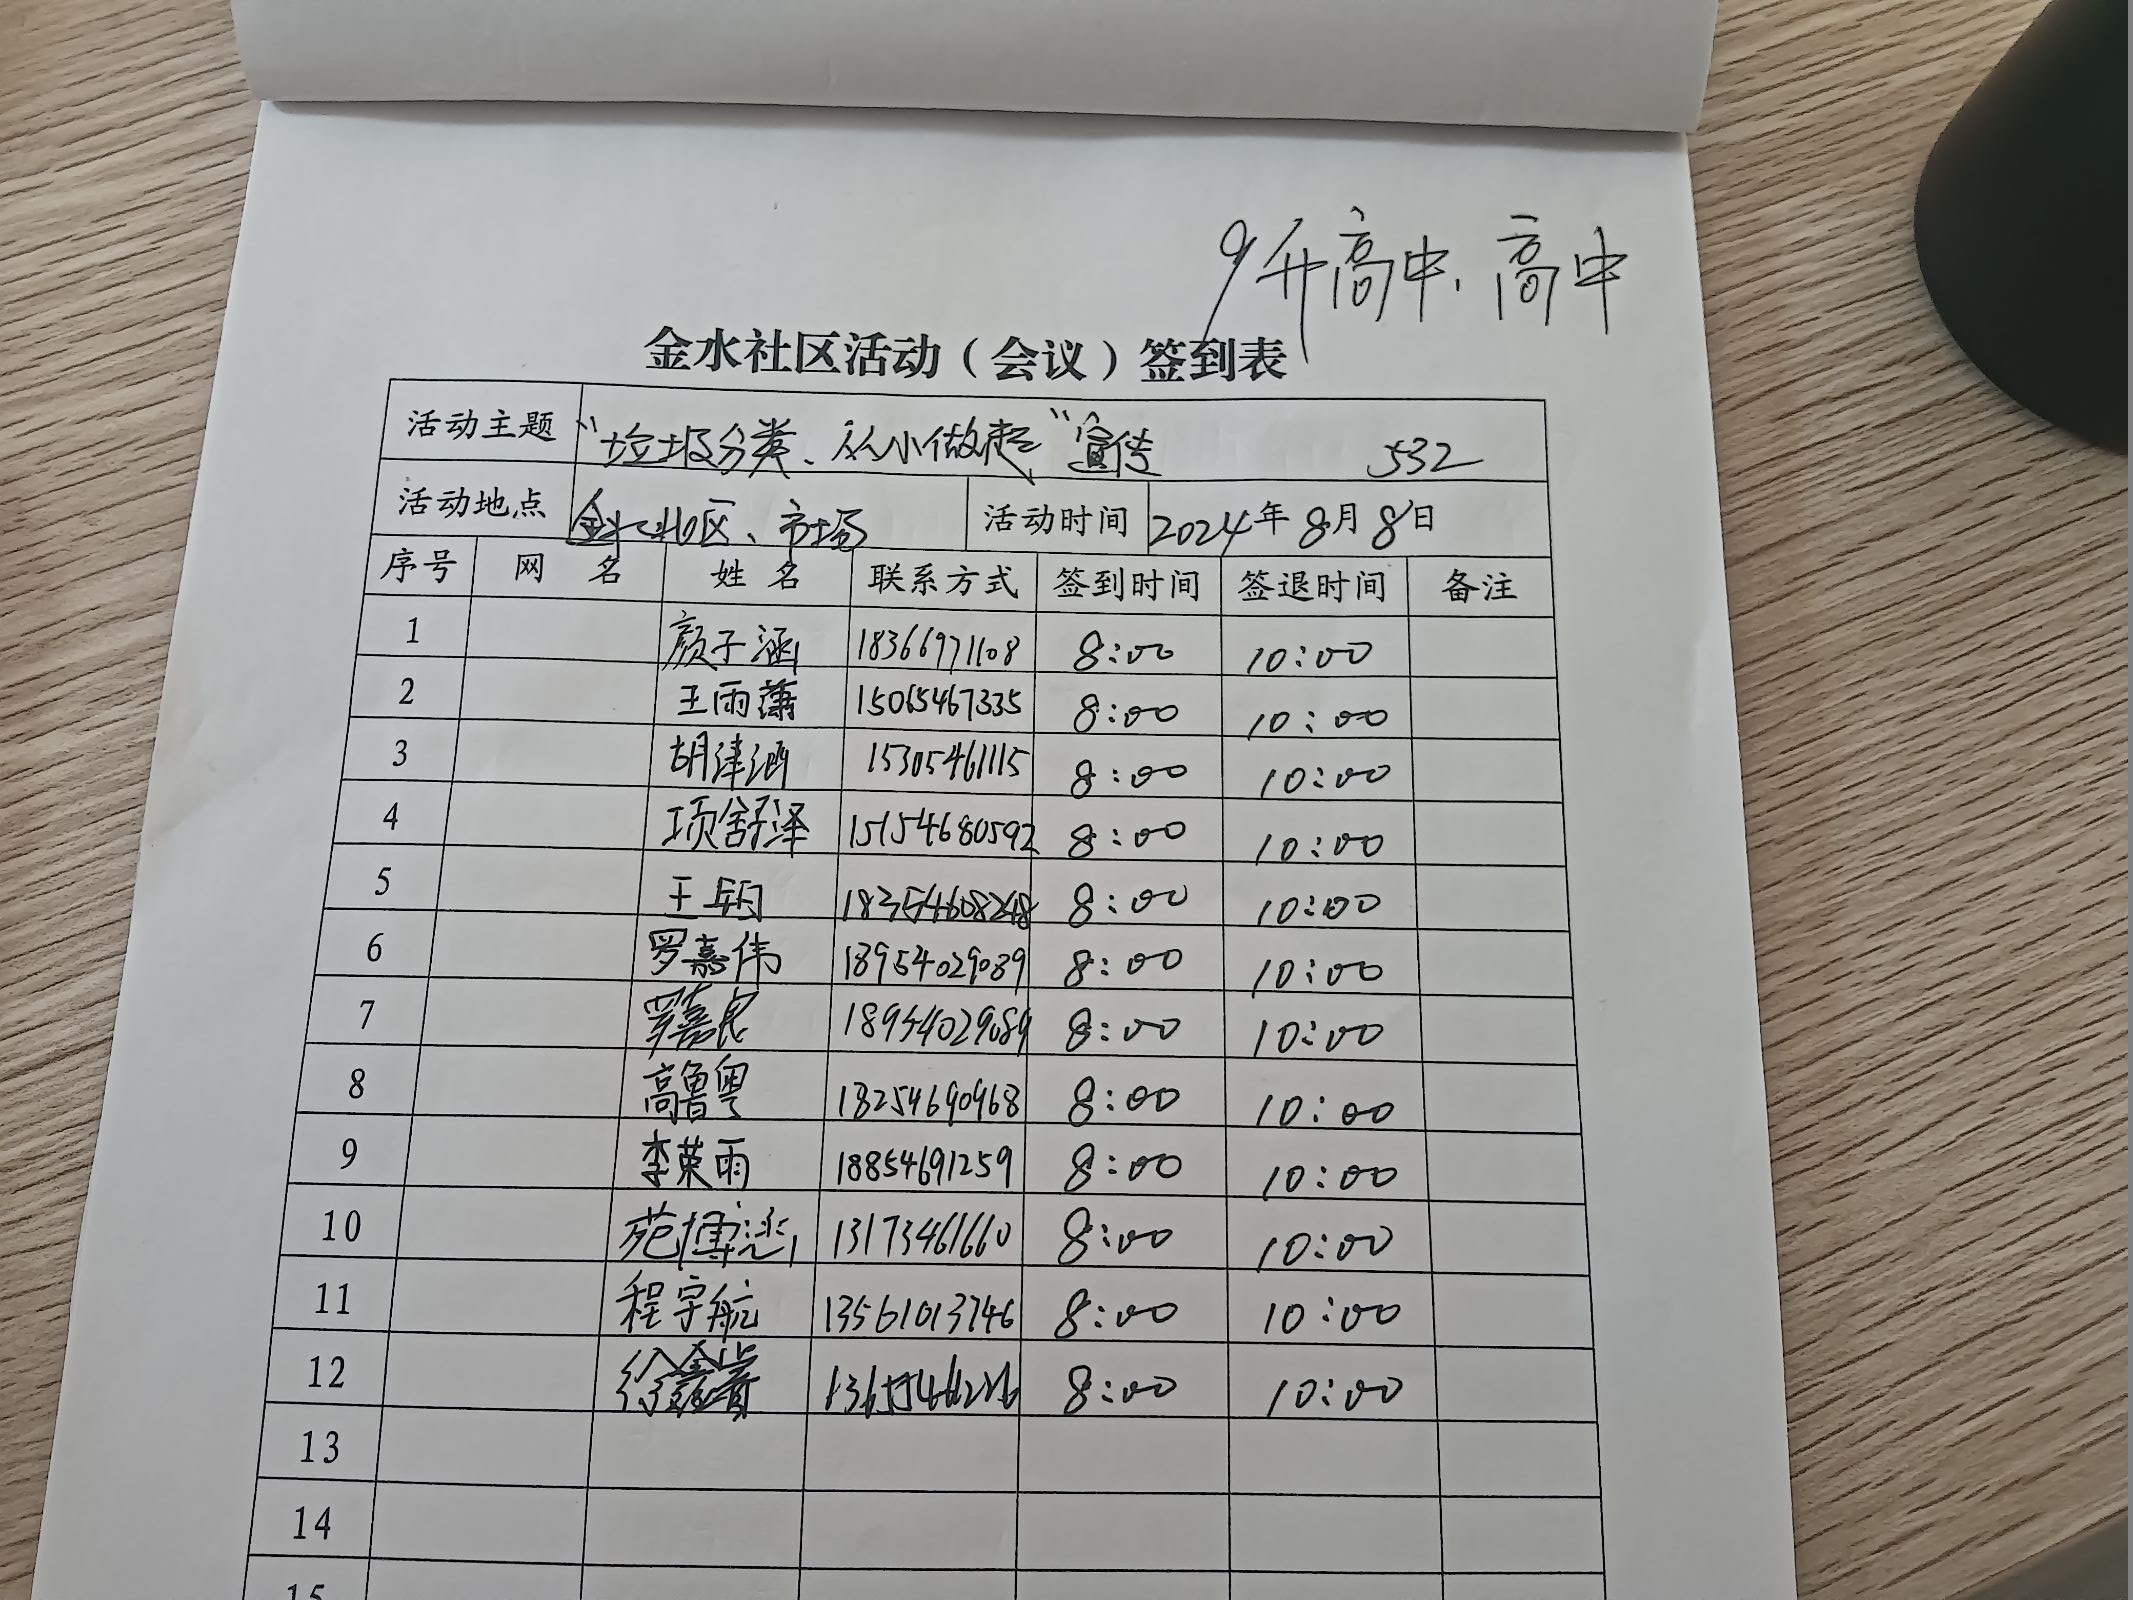 9升高中、高中
金水社区活动（会议）签到表
活动主题 “垃圾分类、从小做起”宣传 532
活动地点 金水社区、市场 活动时间 2024年8月8日
序号 网名 姓名 联系方式 签到时间 签退时间 备注
1 颜子涵 18366971108 8:00 10:00
2 王雨 15065467335 8:00 10:00
3 胡津涵 15305461115 8:00 10:00
4 项舒泽 15154680592 8:00 10:00
5 王 18354608248 8:00 10:00
6 罗嘉伟 18954029089 8:00 10:00
7 罗嘉 18954029089 8:00 10:00
8 高鲁粤 18254690968 8:00 10:00
9 李荣雨 18854691259 8:00 10:00
10 苑博 13173461660 8:00 10:00
11 程宇航 13561013746 8:00 10:00
12 徐鑫 8:00 10:00
13
14
15